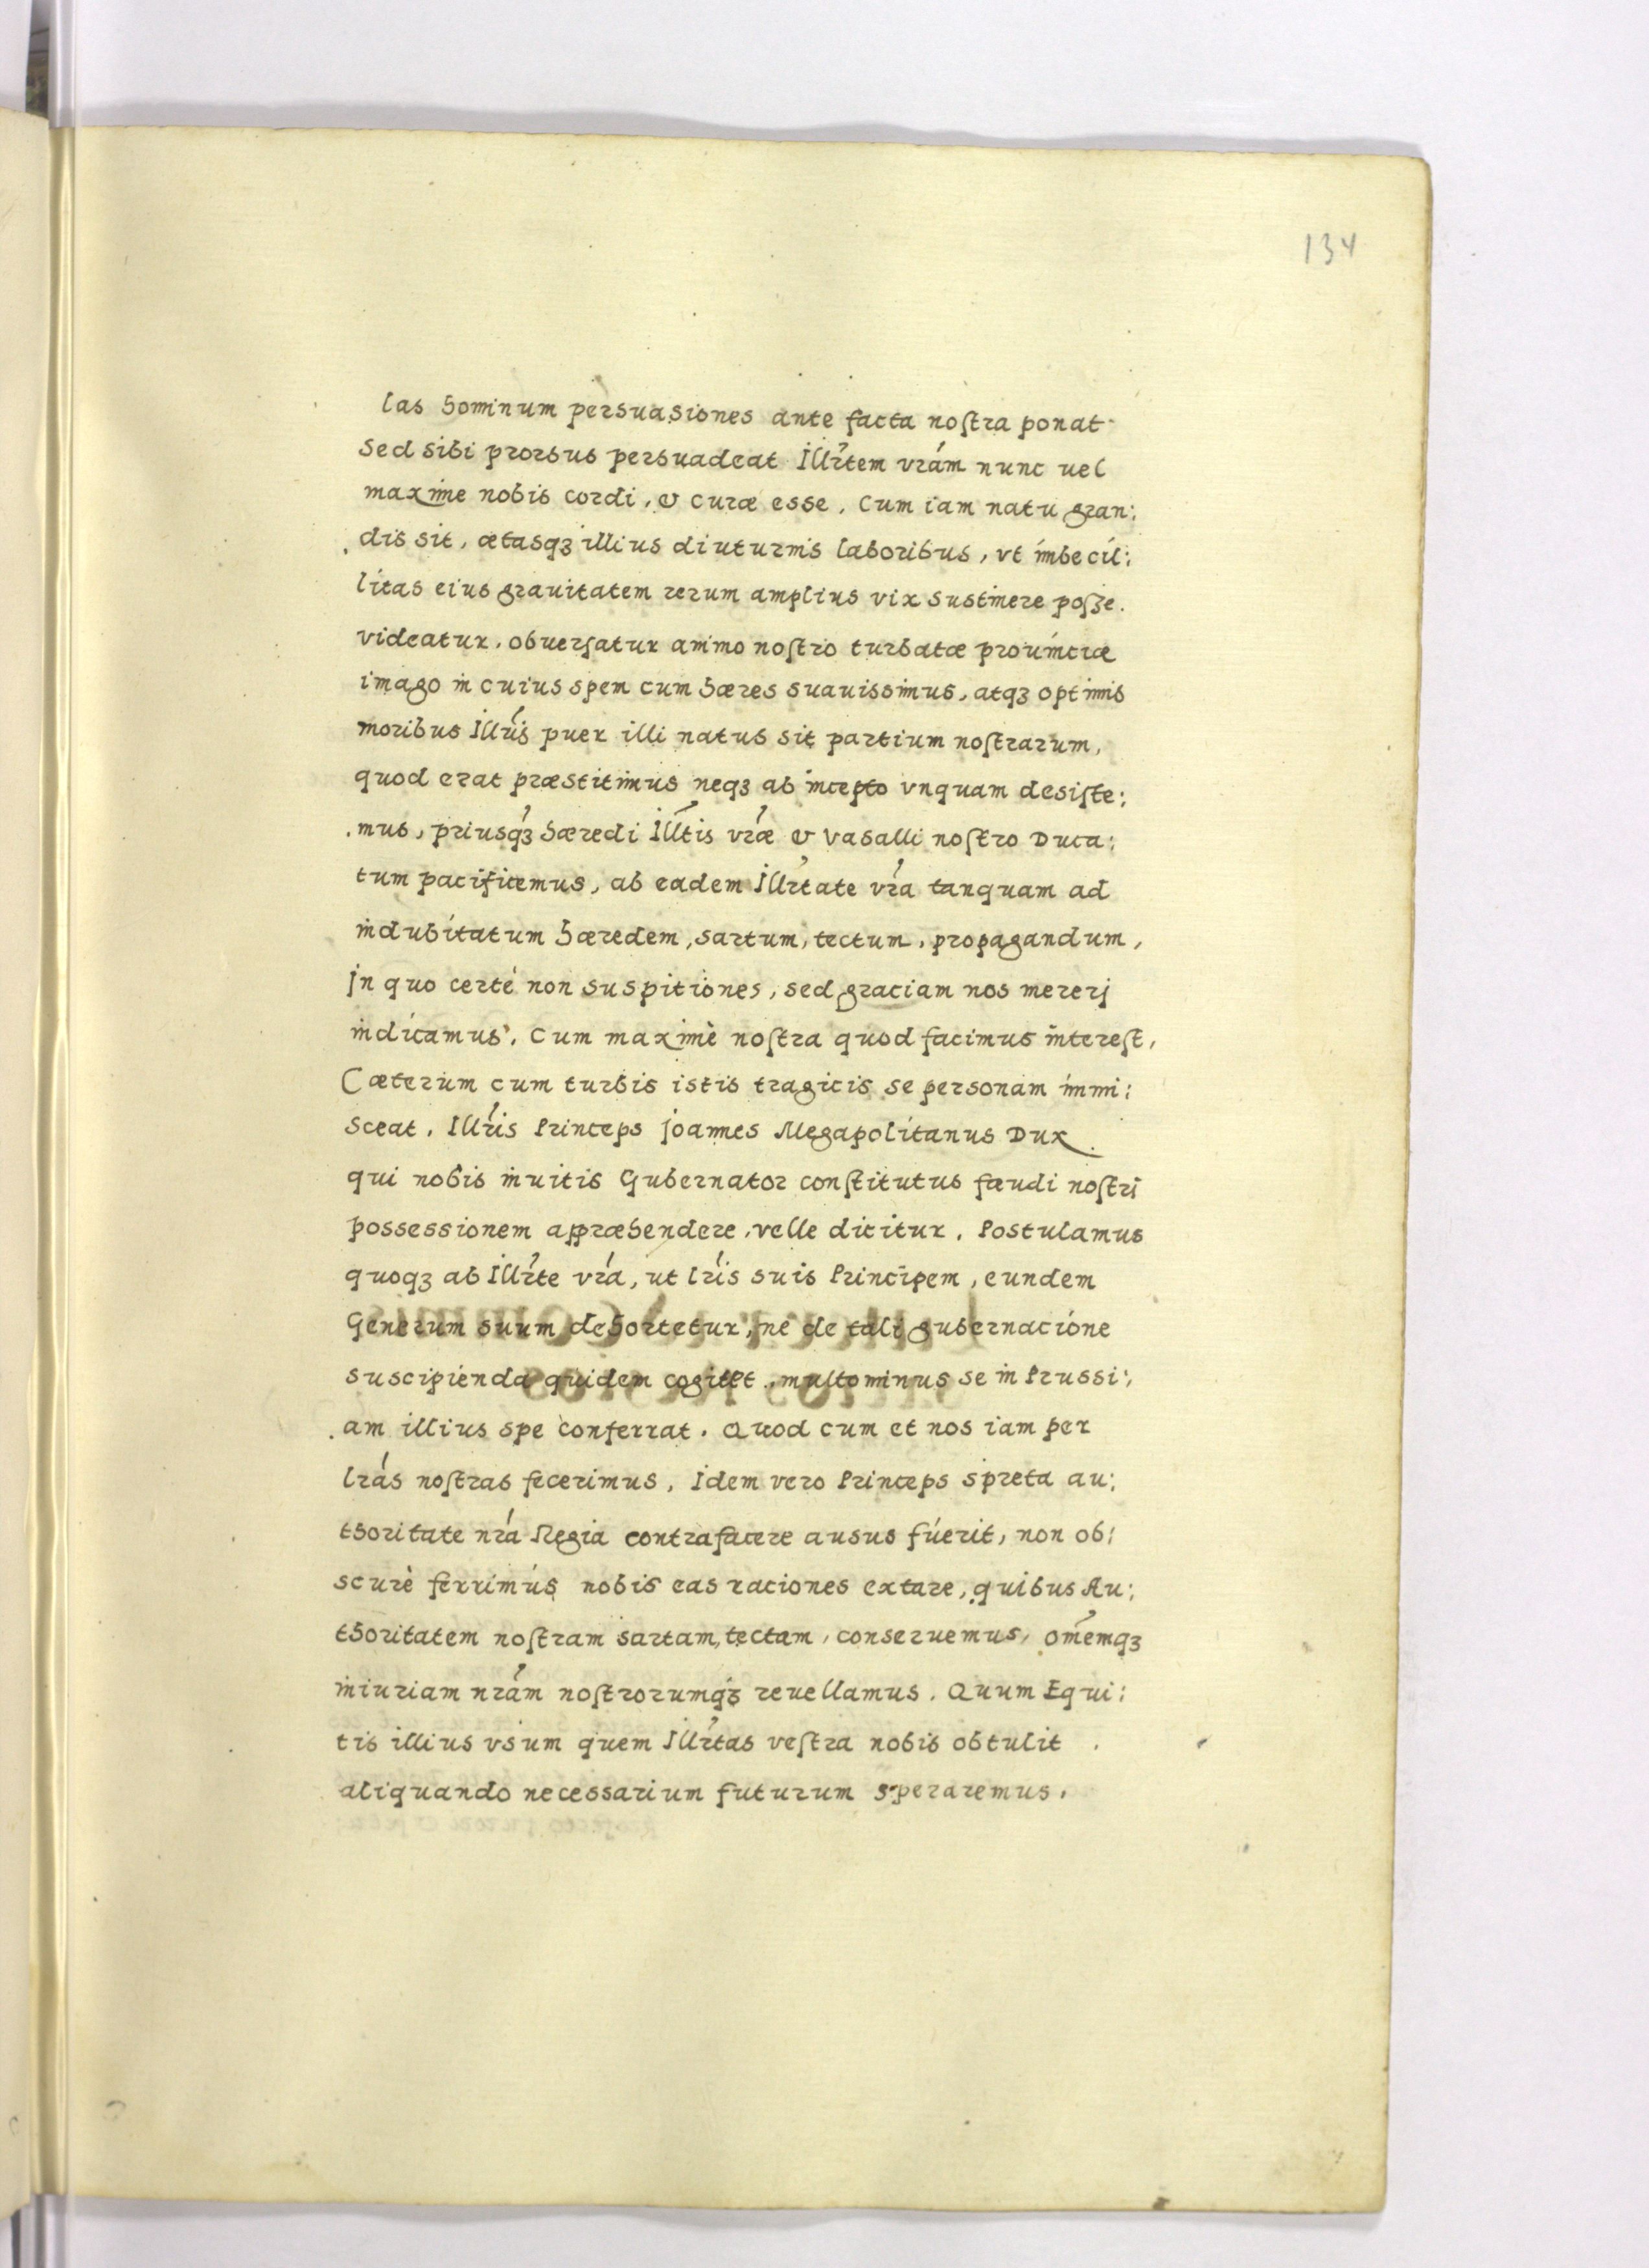 134
las hominum persuasiones ante facta noſtra ponat
Sed sibi prorsus persuadeat Illr̃tem vrãm nunc uel
maxime nobis cordi, & curæ esse, Cum iam natu gran:
dis sit, ætasqȝ illius diuturnis laboribus, vt imbecil:
litas eius grauitatem rerum amplius vix sustinere poſse.
videatur. obuerſatur animo noſtro turbatæ prouinciæ
imago in cuius spem cum hæres suauissimus, atqȝ optimis
moribus Illr̃is puer illi natus sit partium noſtrarum,
quod erat præstitimus neqȝ ab incepto vnquam desiſte:
mus, priusq̃ȝ hæredi Illt̃is vrẽ & Vasalli noſtro Duca:
tum pacificemus, ab eadem Illr̃tate vrã tanquam ad
indubitatum hæredem, sartum, tectum, propagandum,
jn quo certè non suspitiones, sed graciam nos mererj
indicamus. Cum maximè noſtra quod facimus intereſt,
Cæterum cum turbis istis tragicis se personam immi:
Sceat. Illr̃is Princeps joannes Megapolitanus Dux
qui nobis inuitis Gubernator conſtitutus fæudi noſtri
possessionem appræhendere, velle dicitur. Postulamus
quoqȝ ab Illr̃te vrã, ut lrĩs suis Principem, eundem
Generum suum dehortetur, ne de tali gubernacione
suscipienda quidem cogitet, multominus se in Prussi:
am illius spe conferrat. Quod cum et nos iam per
lrãs noſtras fecerimus, Idem vero Princeps spreta au:
thoritate nrã Regia contrafacere ausus fuerit, non ob:
scurè ferrimus nobis eas raciones extare, quibus Au:
thoritatem noſtram sartam, tectam, conseruemus, om̃emqȝ
iniuriam nrãm noſtrorumqȝ reuellamus. Quum Equi:
tis illius vsum quem Illr̃tas veſtra nobis obtulit
aliquando necessarium futurum speraremus.